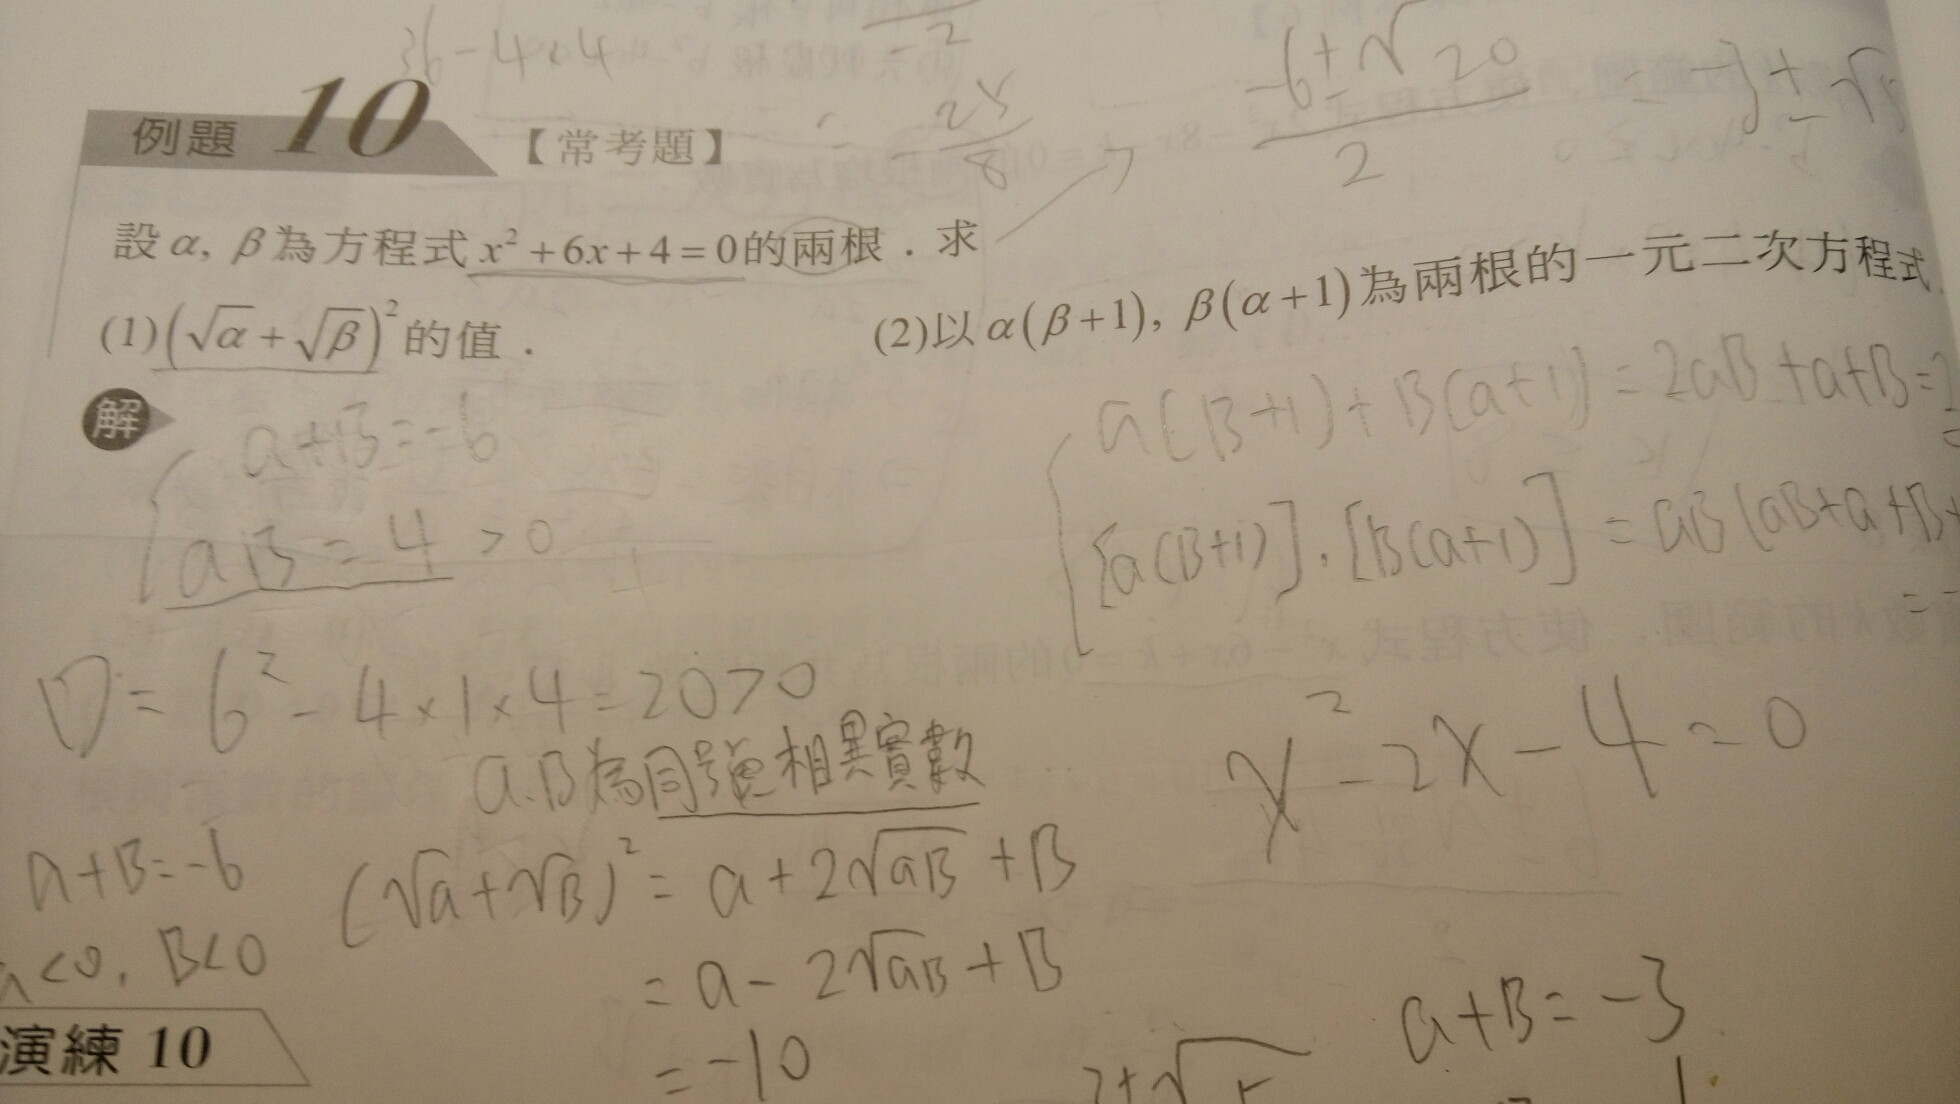 36-4×4
-2
-25/8
(-6±√20)/2 = -3±√5
例題 10 【常考題】
設α, β為方程式x²+6x+4=0的兩根．求
(1)(√α+√β)²的值．
(2)以α(β+1), β(α+1)為兩根的一元二次方程式
解
a+B=-6
aB=4>0
a(B+1)+B(a+1)=2aB+a+B=
[a(B+1)]·[B(a+1)]=aB(aB+a+B+
D=6²-4×1×4=20>0
a.B為同號相異實數
x²-2x-4=0
a+B=-6
a<0, B<0
(√a+√B)²=a+2√aB+B
=a-2√aB+B
=-10
a+B=-3
演練 10